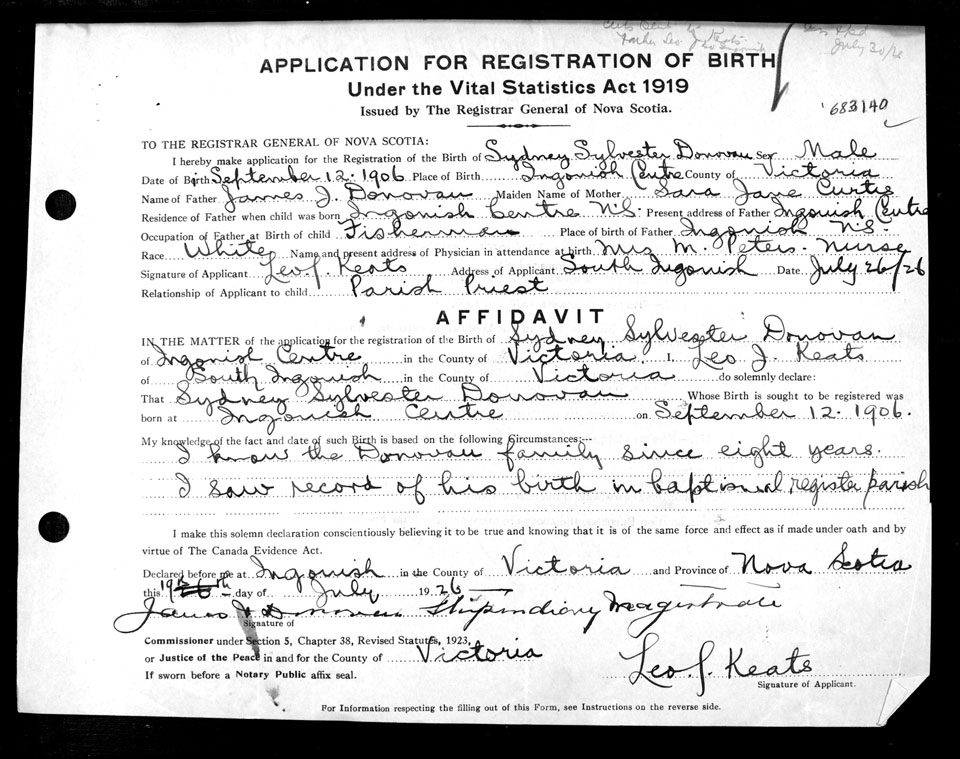 July 30/26
APPLICATION FOR REGISTRATION OF BIRTH
Under the Vital Statistics Act 1919
Issued by The Registrar General of Nova Scotia.
683140
TO THE REGISTRAR GENERAL OF NOVA SCOTIA:
I hereby make application for the Registration of the Birth of Sydney Sylvester Donovan Sex Male
Date of Birth September 12. 1906 Place of Birth Ingonish Centre County of Victoria
Name of Father James J. Donovan Maiden Name of Mother Sara Jane Curtis
Residence of Father when child was born Ingonish Centre N.S. Present address of Father Ingonish Centre
Occupation of Father at Birth of child Fisherman Place of birth of Father Ingonish N.S.
Race White Name and present address of Physician in attendance at birth Mrs M. Peters. Nurse
Signature of Applicant Leo J. Keats Address of Applicant South Ingonish Date July 26/26
Relationship of Applicant to child Parish Priest
AFFIDAVIT
IN THE MATTER of the application for the registration of the Birth of Sydney Sylvester Donovan
of Ingonish Centre in the County of Victoria I, Leo J. Keats
of South Ingonish in the County of Victoria do solemnly declare:
That Sydney Sylvester Donovan Whose Birth is sought to be registered was
born at Ingonish Centre on September 12. 1906.
My knowledge of the fact and date of such Birth is based on the following Circumstances:—
I know the Donovan family since eight years.
I saw record of his birth in baptismal register parish
I make this solemn declaration conscientiously believing it to be true and knowing that it is of the same force and effect as if made under oath and by
virtue of The Canada Evidence Act.
Declared before me at Ingonish in the County of Victoria and Province of Nova Scotia
this day of July 1926
James J Donovan Stipendiary Magistrate
Signature of
Commissioner under Section 5, Chapter 38, Revised Statutes, 1923,
or Justice of the Peace in and for the County of Victoria
If sworn before a Notary Public affix seal.
Leo J. Keats
Signature of Applicant.
For Information respecting the filling out of this Form, see Instructions on the reverse side.